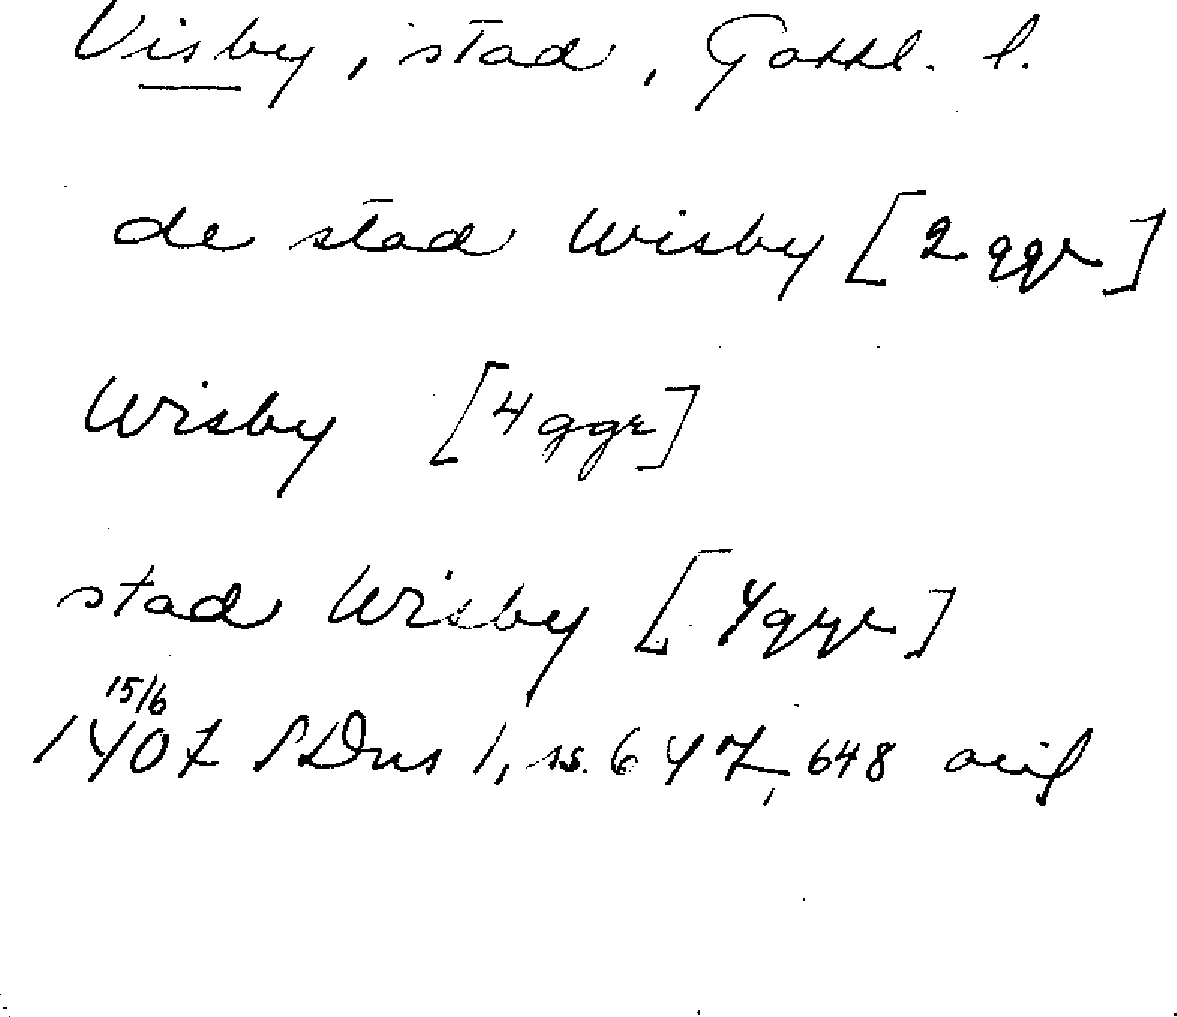 Visby, stad, Gottl. l.
de stad Wisby [2 ggr]
Wisby [4 ggr]
stad Wisby [4 ggr]
15/6
1407 SDns 1, ss. 647, 648